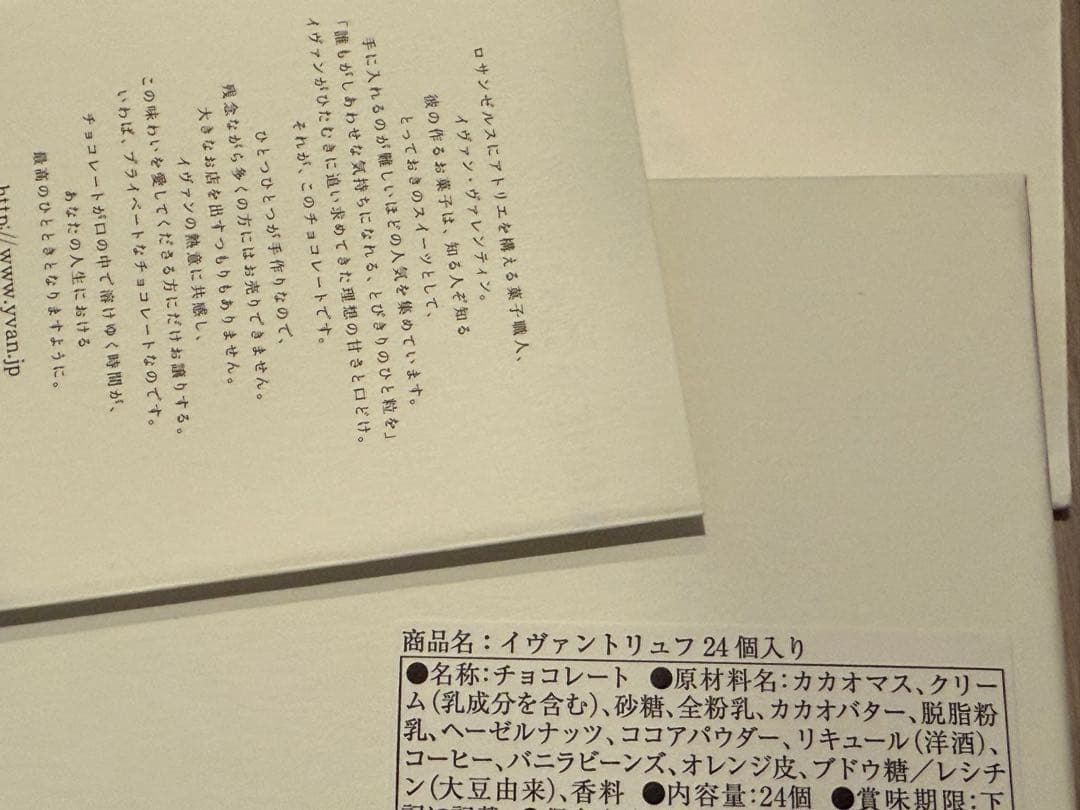 ロサンゼルスにアトリエを構える菓子職人、
イヴァン・ヴァレンティン。
彼の作るお菓子は、知る人ぞ知る
とっておきのスイーツとして、
手に入れるのが難しいほどの人気を集めています。
「誰もがしあわせな気持ちになれる、とびきりのひと粒を」
イヴァンがひたむきに追い求めてきた理想の甘さと口どけ。
それが、このチョコレートです。
ひとつひとつが手作りなので、
残念ながら多くの方にはお売りできません。
大きなお店を出すつもりもありません。
イヴァンの熱意に共感し、
この味わいを愛してくださる方にだけお譲りする。
いわば、プライベートなチョコレートなのです。
チョコレートが口の中で溶けゆく時間が、
あなたの人生における
最高のひとときとなりますように。
http://www.yvan.jp
商品名：イヴァントリュフ24個入り
●名称:チョコレート ●原材料名:カカオマス、クリー
ム(乳成分を含む)、砂糖、全粉乳、カカオバター、脱脂粉
乳、ヘーゼルナッツ、ココアパウダー、リキュール(洋酒)、
コーヒー、バニラビーンズ、オレンジ皮、ブドウ糖／レシチ
ン(大豆由来)、香料 ●内容量:24個 ●賞味期限:下